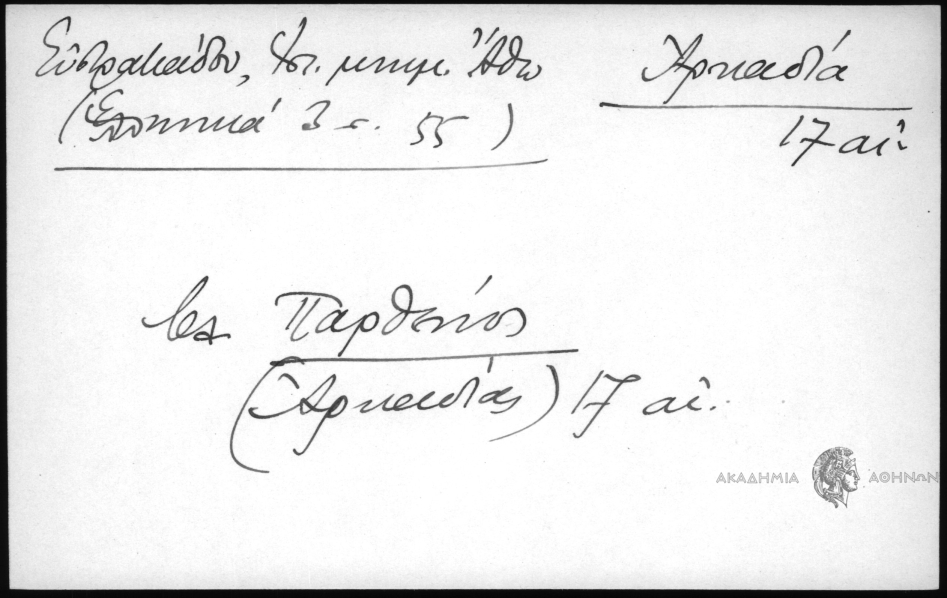 Εὐστρατιάδου, Ἱστ. μνημ. Ἄθω
(Ἑλληνικά 3 σ. 55)
Ἀρκαδία
17 αἰ.
βλ. Παρθένιος
(Ἀρκαδίας) 17 αἰ.
ΑΚΑΔΗΜΙΑ ΑΘΗΝΩΝ